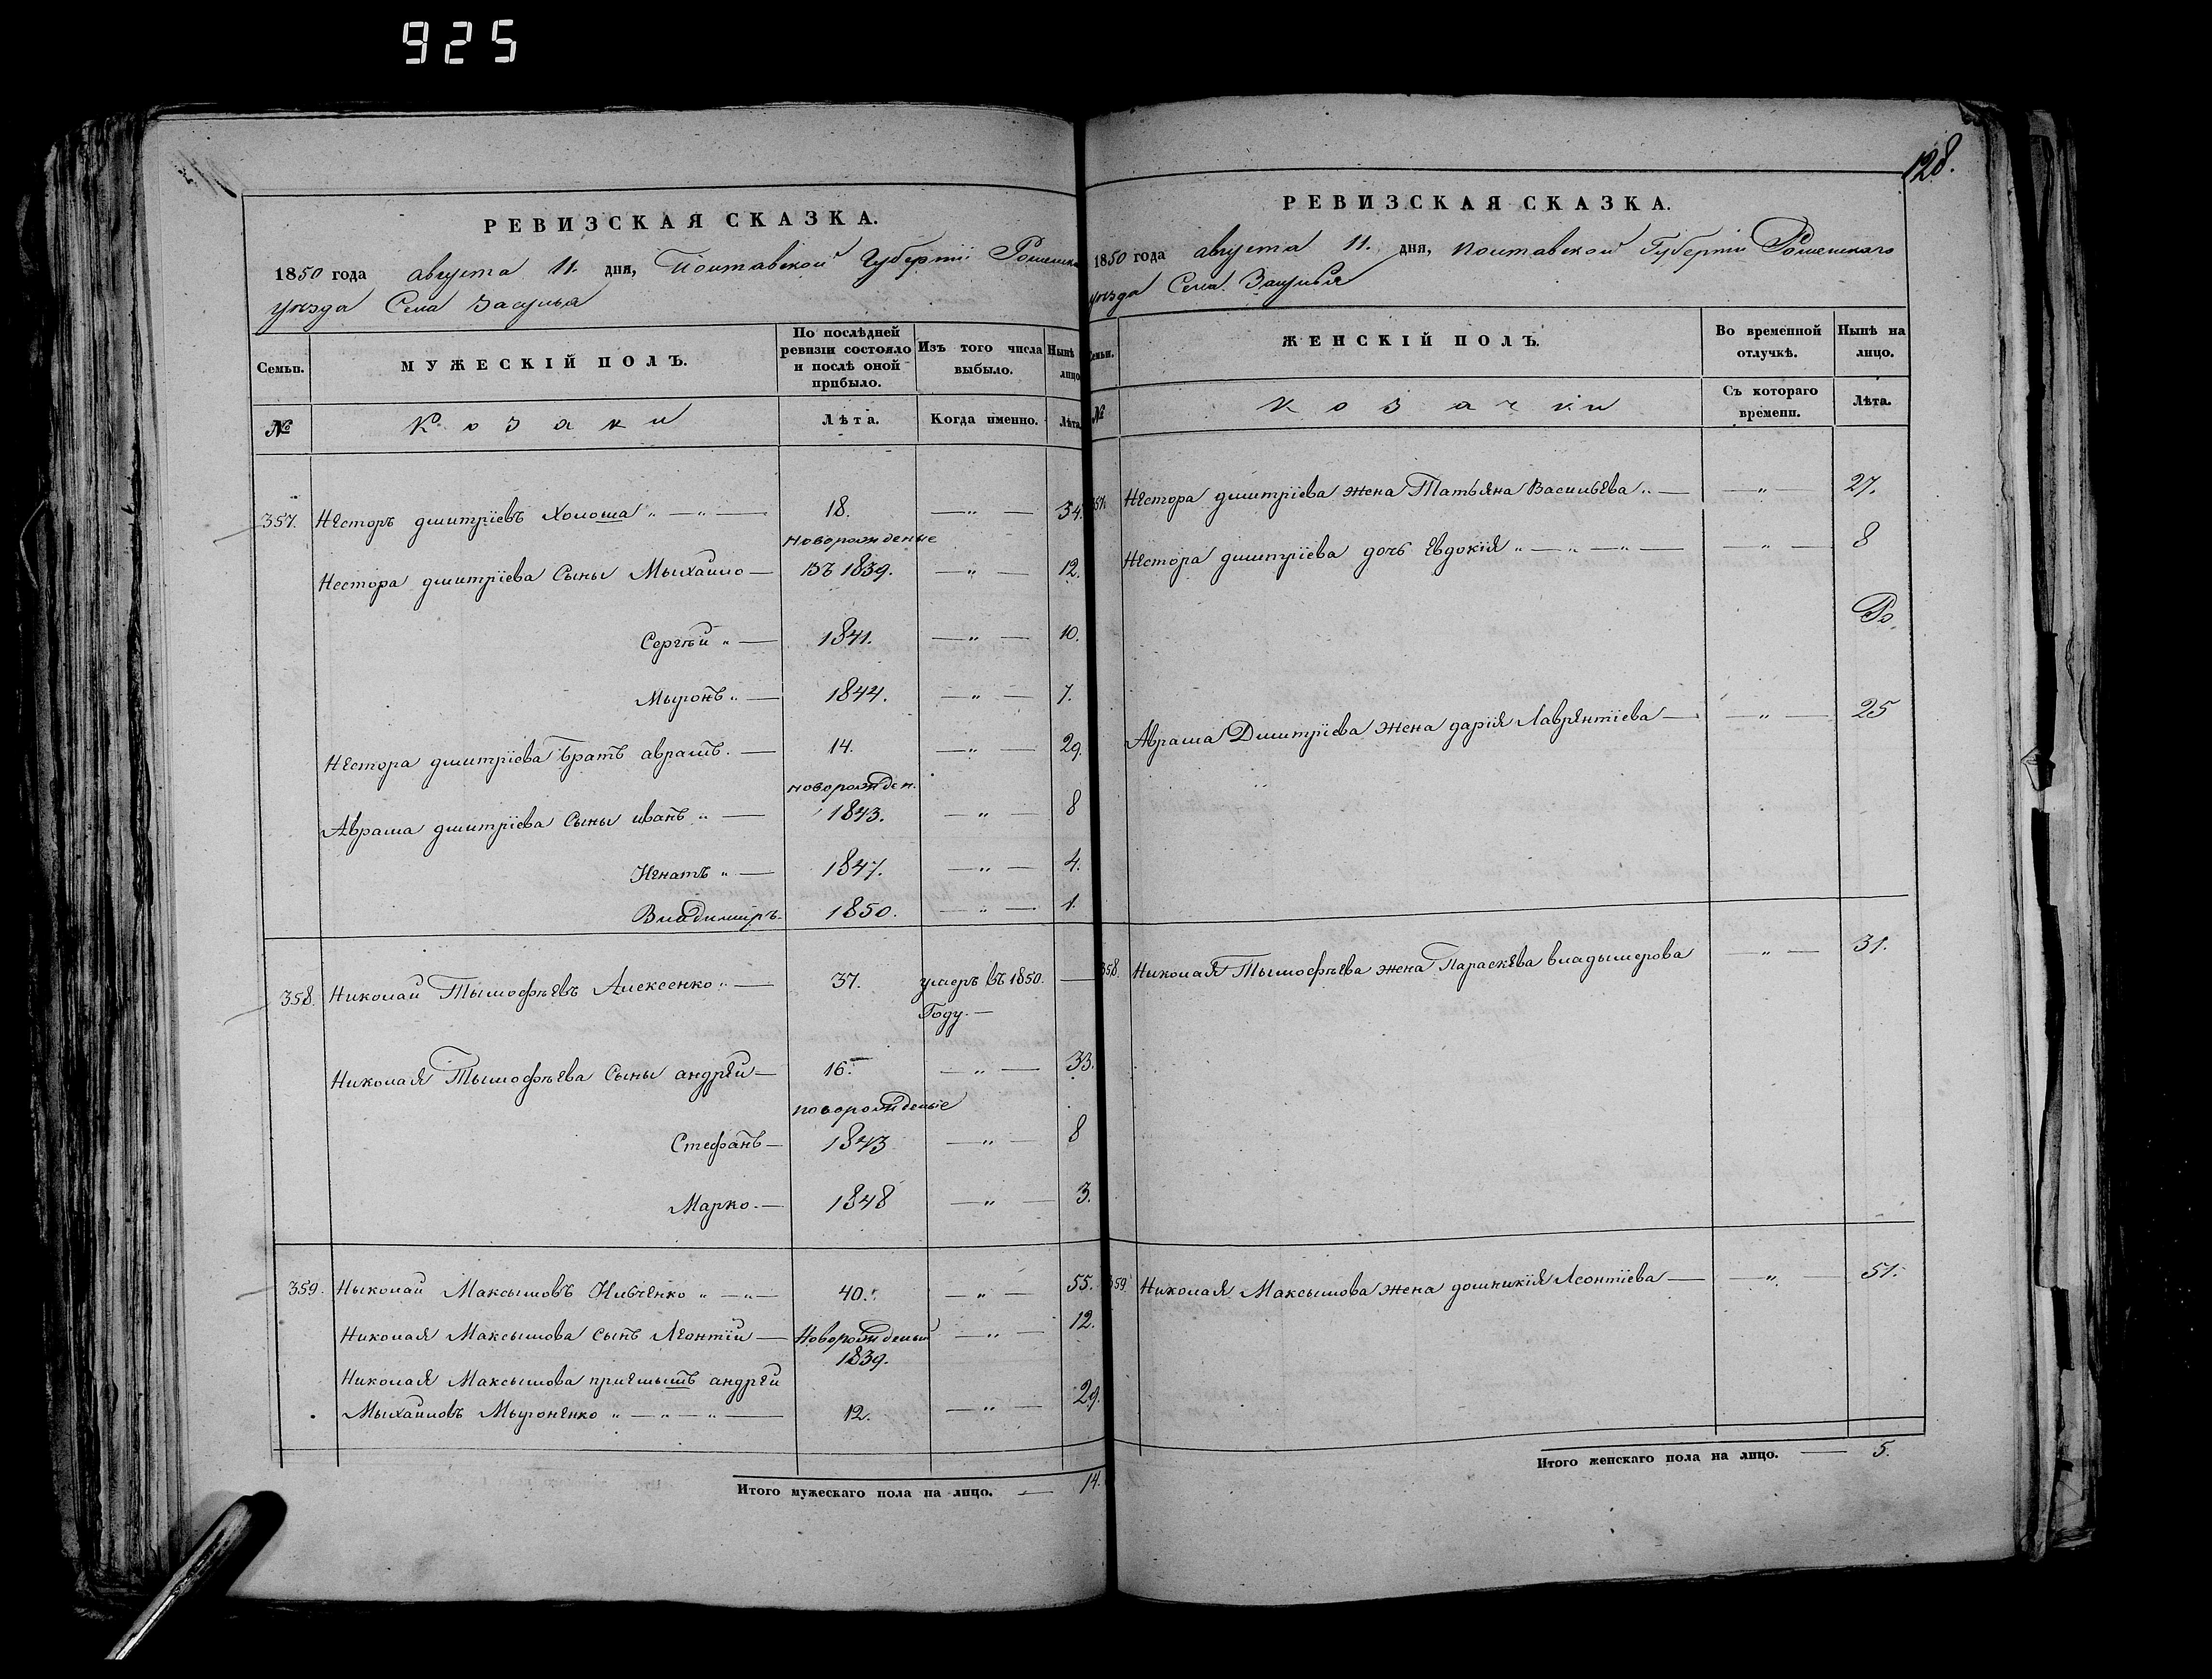 925
РЕВИЗСКАЯ СКАЗКА.
1850 года августа 11. дня, Полтавской Губерніи
уѣзда Села Засулья
Семьи. МУЖЕСКІЙ ПОЛЪ. По послѣдней ревизіи состояло и послѣ оной прибыло. Изъ того числа выбыло. Нынѣ лицо
№ Козаки Лѣта. Когда именно. Лѣта.
357. Нѣсторъ дмитріевъ Холоша „ — „ — 18. — „ — 34.
новорожденые
Нестора дмитріева Сыны Мыхайло — ВЪ 1839. — „ — 12.
Сергѣй „ — 1841. — „ — 10.
Мыронъ „ — 1844. — „ — 7.
Нестора дмитріева братъ аврамъ. — 14. — „ — 29.
новорожден.
Аврама дмитріева Сыны иванъ „ — 1843. — „ — 8
Игнатъ „ — 1847. — „ — 4.
Владимиръ. 1850. — „ — 1.
358. Николай Тымофѣевъ Алексенко „ — 37. умеръ въ 1850. —
Году. —
Николая Тымофѣева Сыны андрей — 16. — „ — 33.
новорожденые
Стефанъ — 1843 — „ — 8
Марко. — 1848 — „ — 3.
359. Ныколай Максымовъ „ — „ — 40. — „ — 55.
Николая Максымова сынъ Леонтій — Новорожденый — „ — 12.
1839.
Николая Максымова приемышъ андрей
Мыхайловъ Мыроненко „ — „ — „ — 12. — „ — 29.
Итого мужескаго пола на лицо. — 14.
128.
РЕВИЗСКАЯ СКАЗКА.
1850 года августа 11. дня, Полтавской Губерніи Роменскаго
уѣзда Села Засулья
Семьи. ЖЕНСКІЙ ПОЛЪ. Во временной отлучкѣ. Нынѣ на лицо.
№ козачки Съ котораго времени. Лѣта.
357. Нестора дмитріева жена Татьяна Васильева „ — — „ — 27.
Нестора дмитріева дочь Евдокія „ — „ — „ — — „ — 8
Аврама Дмитріева жена дарія Лаврентіева — — „ — 25
358. Николая Тымофѣева жена Параскева владымерова — „ — 31.
359. Николая Максымова жена домникія Леонтіева — — „ — 51.
Итого женскаго пола на лицо. — 5.